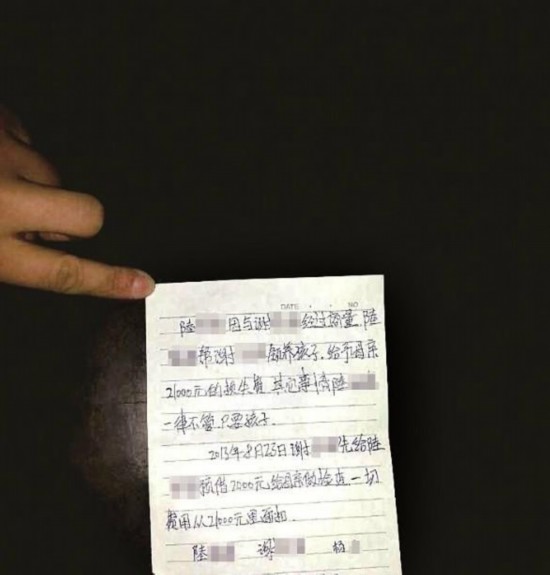 DATE . . NO
陆 因与谢 经过商量,陆
帮谢 领养孩子,给予母亲
21000元的损失费,其它事情陆
一律不管,只要孩子.
2013年8月23日谢 先给陆
预借2000元给母亲做检查一切
费用从21000元里面扣.
陆 谢 杨